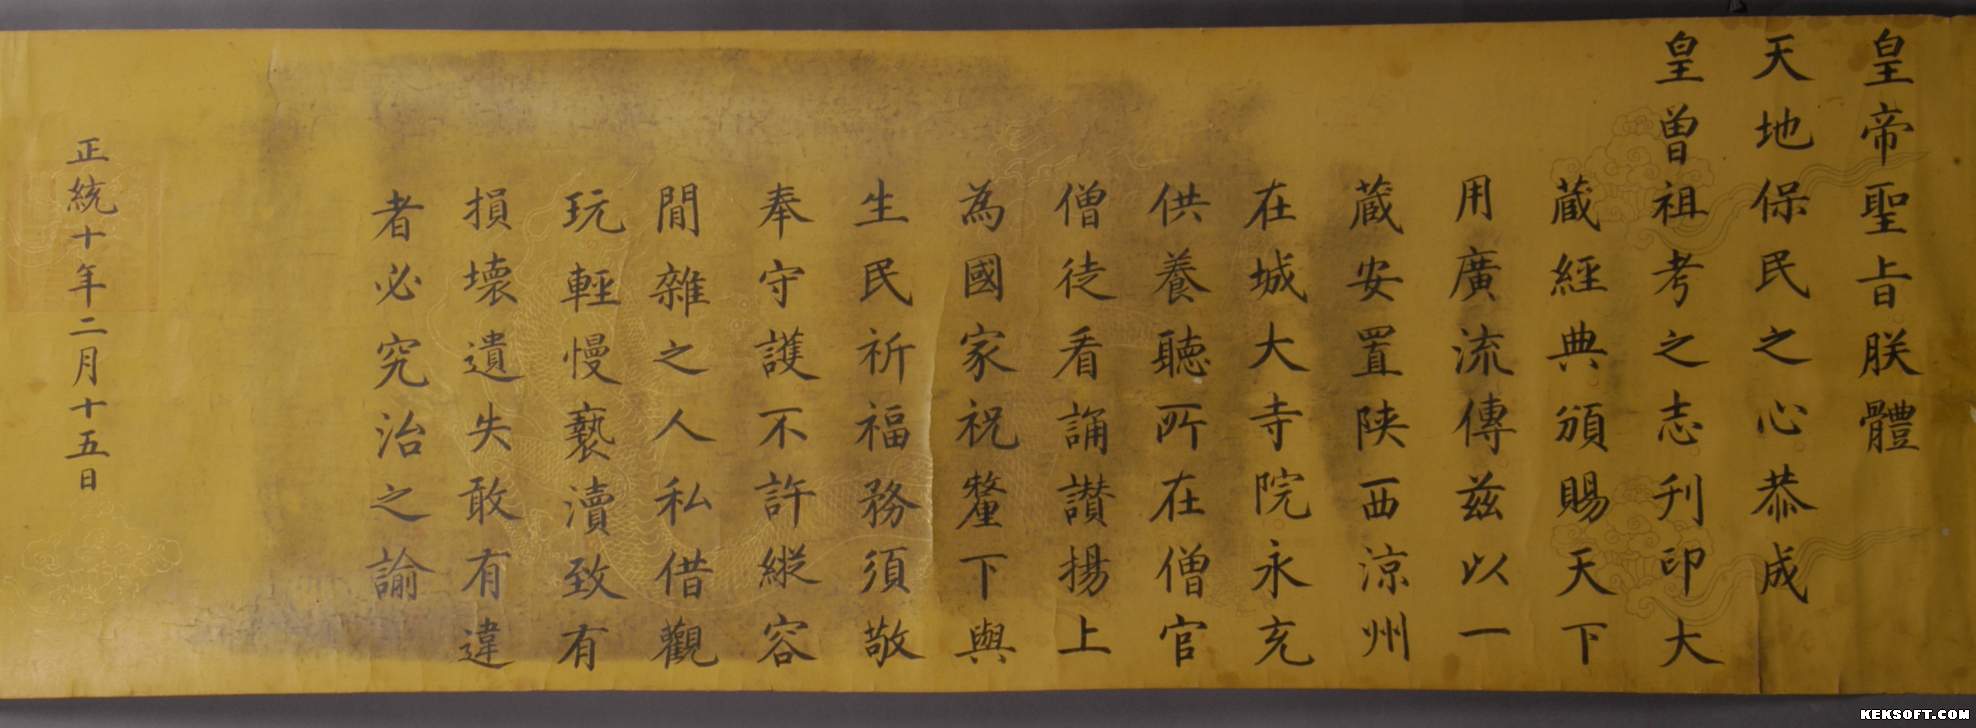 皇帝聖旨朕體
天地保民之心恭成
皇曾祖考之志刋印大
藏經典頒賜天下
用廣流傳茲以一
藏安置陝西涼州
在城大寺院永充
供養聽所在僧官
僧徒看誦讃揚上
為國家祝釐下與
生民祈福務須敬
奉守護不許縱容
閒雜之人私借觀
玩輕慢褻瀆致有
損壞遺失敢有違
者必究治之諭
正統十年二月十五日
KEKSOFT.COM